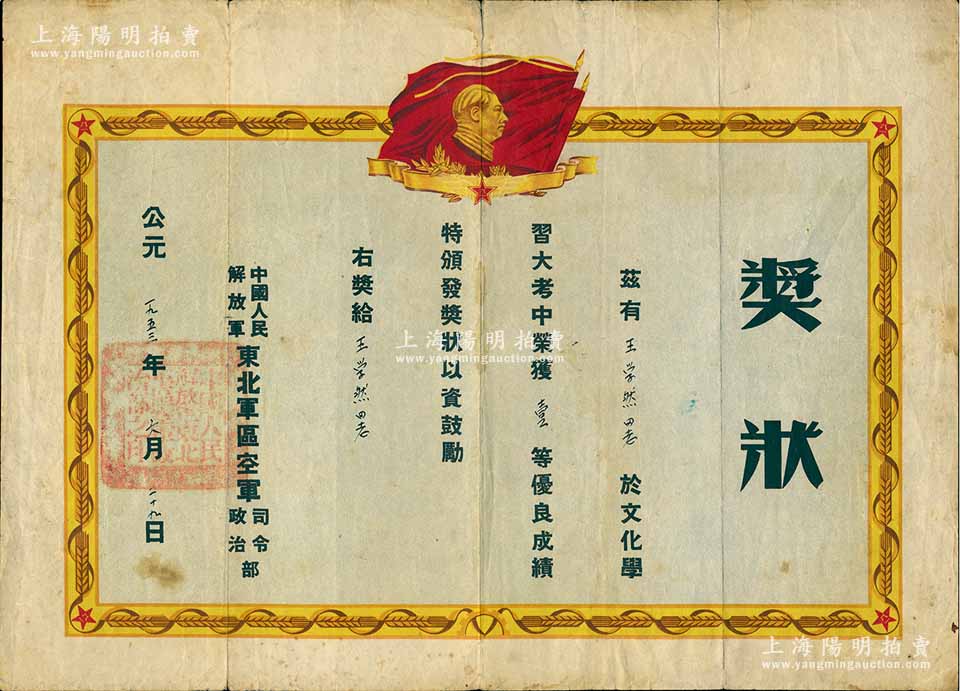 上海陽明拍賣
www.yangmingauction.com
上海陽明拍賣
www.yangmingauction.com
獎狀
茲有王学然同志於文化學
習大考中榮獲壹等優良成績
特頒發獎狀以資鼓勵
右獎給王学然同志
中國人民
解放軍
東北軍區空軍
司令
政治
部
公元一九五三年六月二十九日
上海陽明拍賣
www.yangmingauction.com
上海陽明拍賣
www.yangmingauction.com